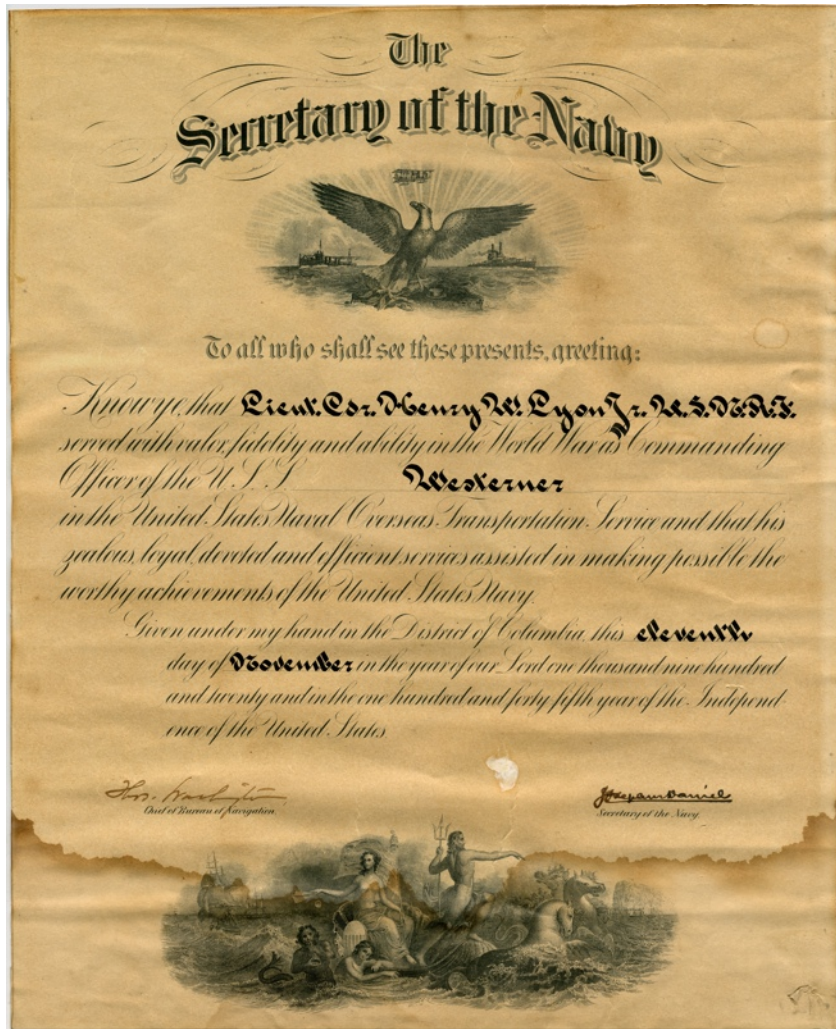 The
Secretary of the Navy
To all who shall see these presents, greeting:
Know ye, that Lieut. Cdr. Henry W. Lyon Jr. U.S.N.R.F.
served with valor, fidelity and ability in the World War as Commanding
Officer of the U.S.S. Westerner
in the United States Naval Overseas Transportation Service and that his
zealous, loyal, devoted and efficient services assisted in making possible the
worthy achievements of the United States Navy.
Given under my hand in the District of Columbia, this eleventh
day of November in the year of our Lord one thousand nine hundred
and twenty and in the one hundred and forty fifth year of the Independ-
ence of the United States
Thos. Washington Josephus Daniels
Chief of Bureau of Navigation. Secretary of the Navy